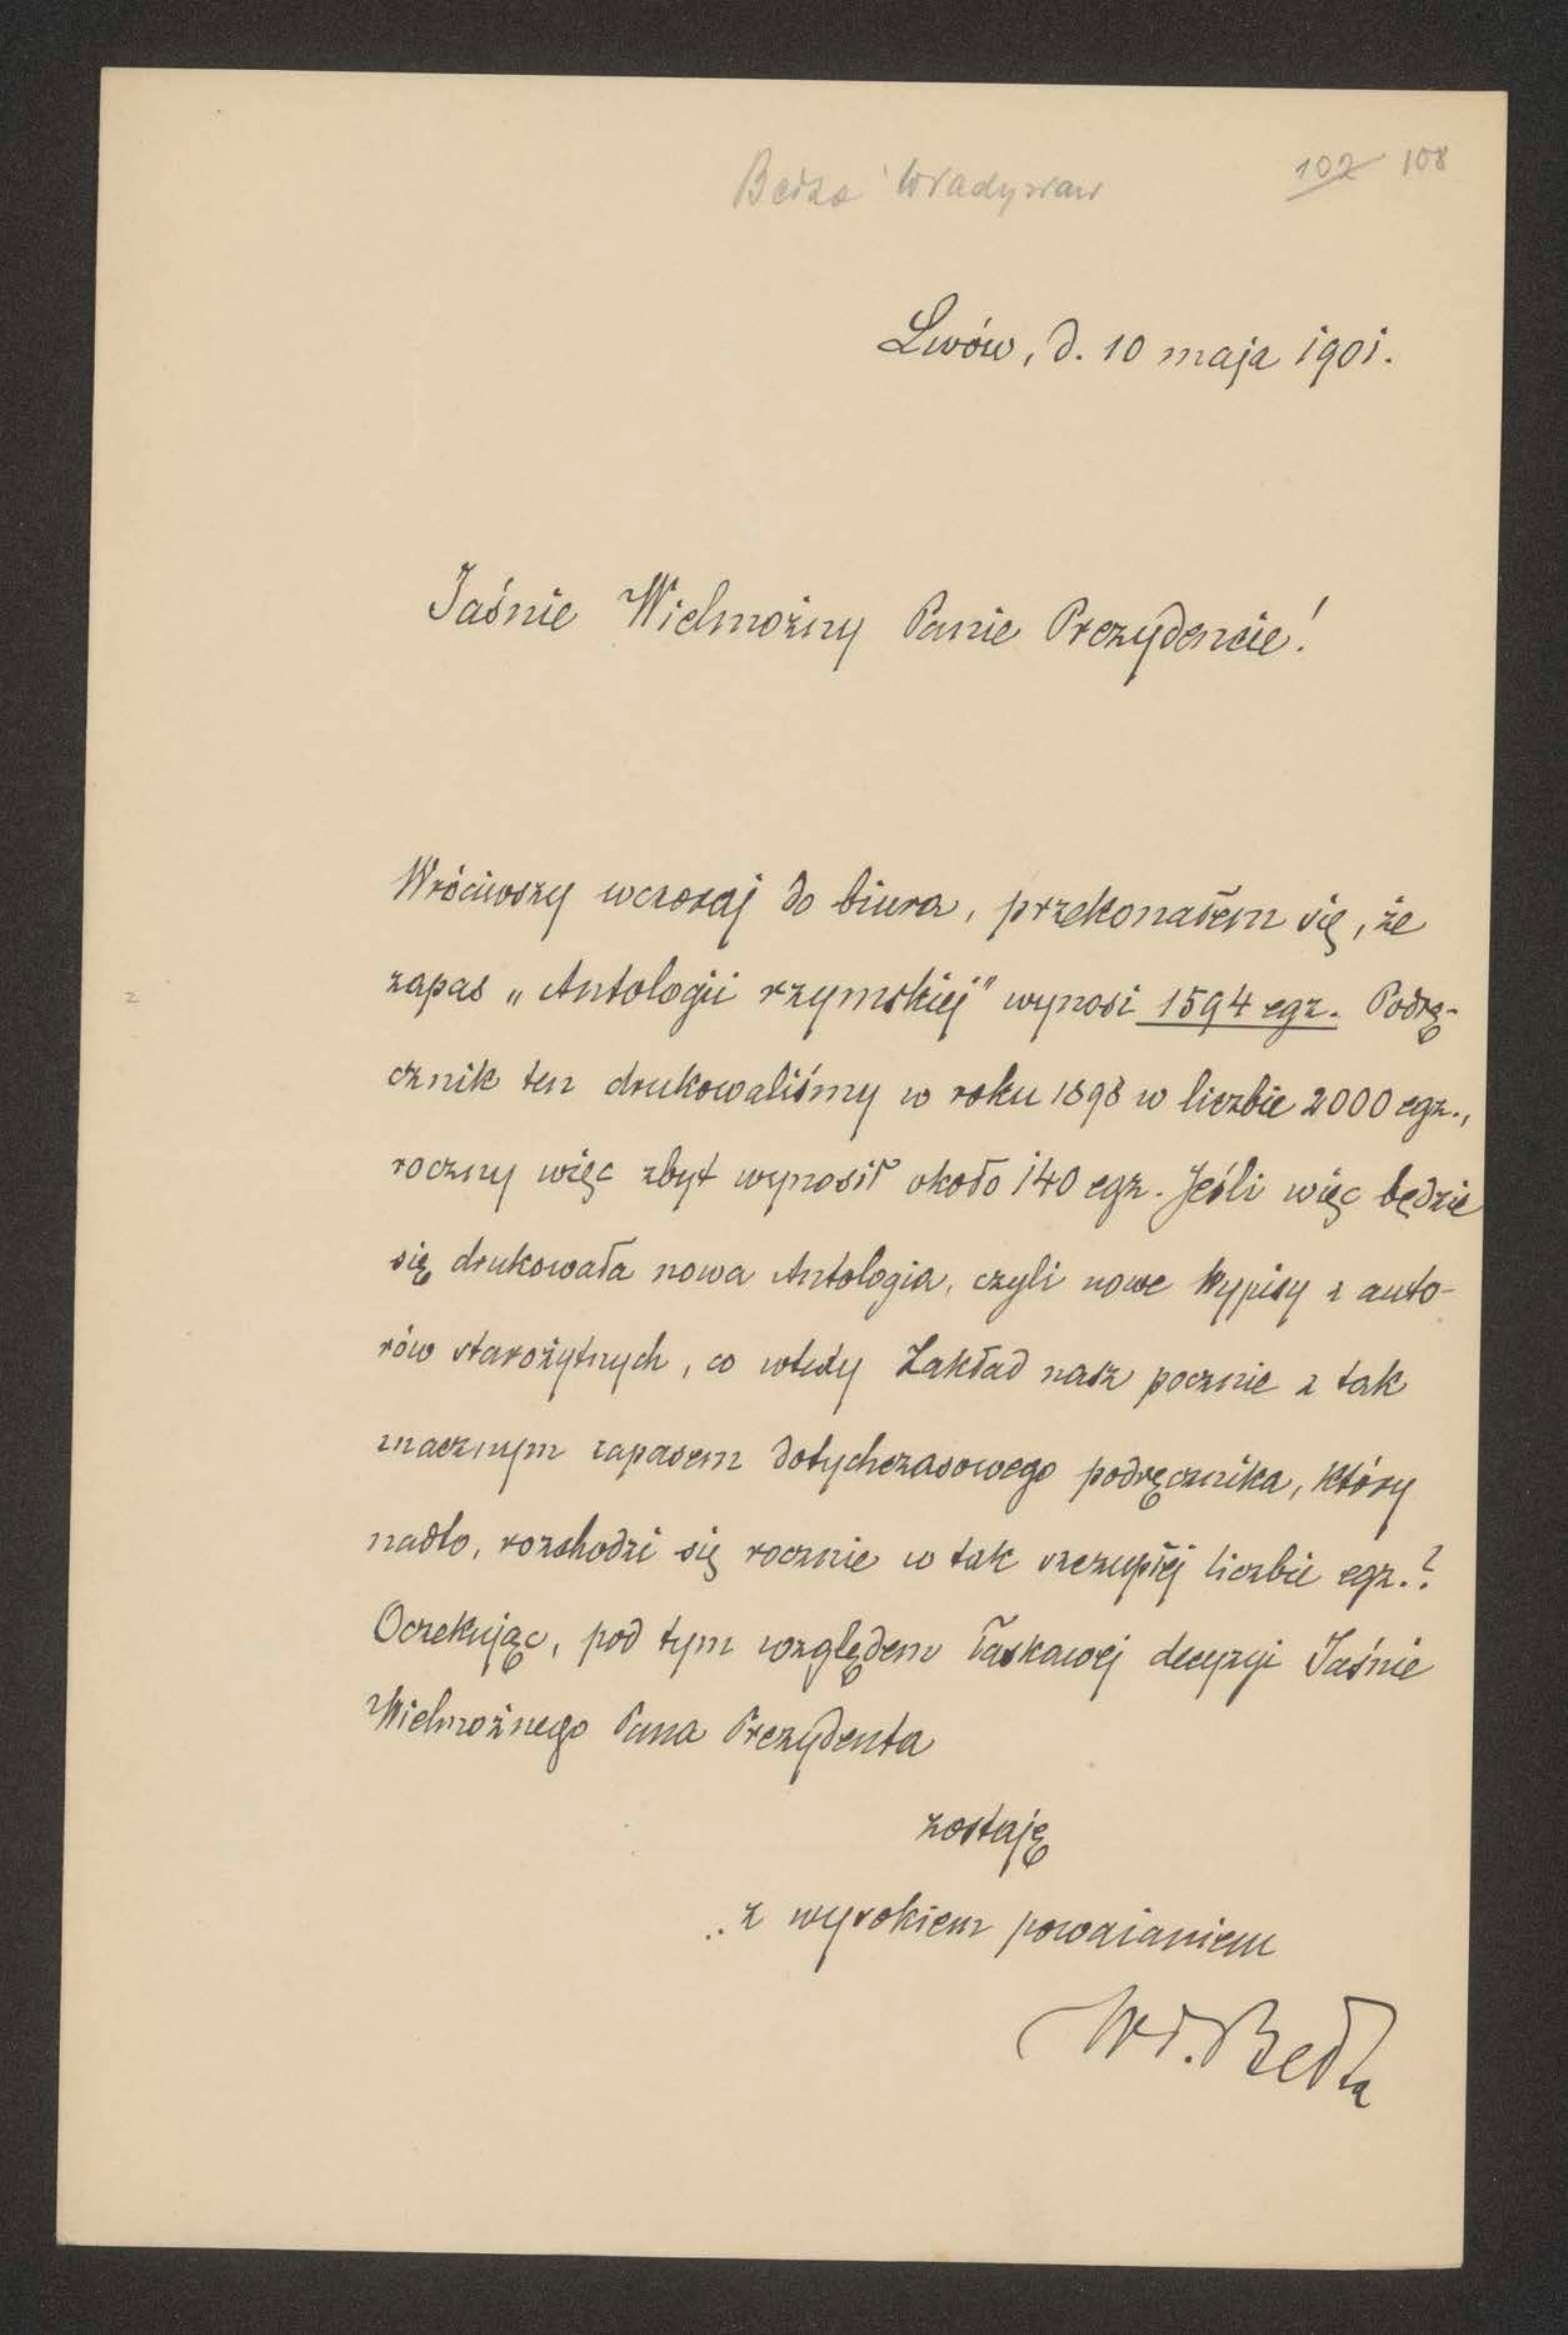 Bełza Władysław
102 108
Lwów, d. 10 maja 1901.
Jaśnie Wielmożny Panie Prezydencie!
Wróciwszy wczoraj do biura, przekonałem się, że
zapas „Antologii rzymskiej" wynosi 1594 egz. Podrę-
cznik ten drukowaliśmy w roku 1898 w liczbie 2000 egz.,
roczny więc zbyt wynosił około 140 egz. Jeśli więc będzie
się drukowała nowa Antologia, czyli nowe Wypisy z auto-
rów starożytnych, co wtedy Zakład nasz pocznie z tak
znacznym zapasem dotychczasowego podręcznika, który
nadto, rozchodzi się rocznie w tak szczupłej liczbie egz.?
Oczekując, pod tym względem łaskawej decyzyi Jaśnie
Wielmożnego Pana Prezydenta
zostaję
z wysokiem poważaniem
Wł. Bełza